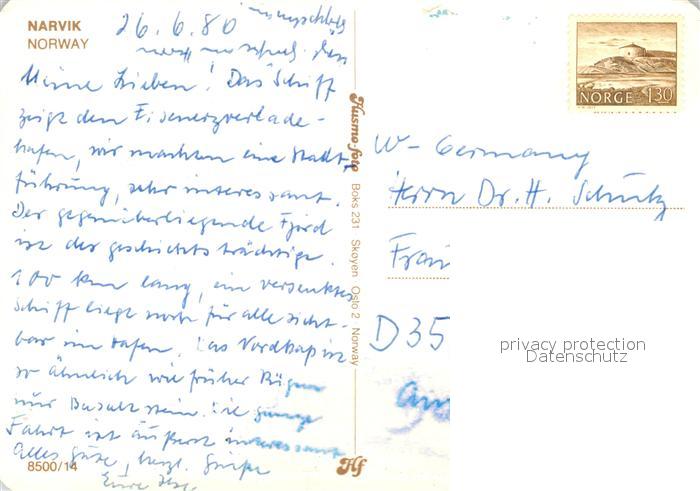 NARVIK
NORWAY
26.6.80
Meine Lieben! Das Schiff
zeigt den Eisenerzverlade-
hafen, wir machten eine Stadt-
führung, sehr interessant.
Der gegenüberliegende Fjord
ist der geschichtsträchtige.
100 km lang, ein versenktes
Schiff liegt noch für alle sicht-
bar im Hafen. Das Nordkap ist
so ähnlich wie früher Rügen
nur Basaltstein. Die ganze
Fahrt ist äußerst interessant
Alles Gute, herzl. Grüße
Eure
8500/14
Husmo-foto
Boks 231 Skøyen Oslo 2 Norway
Hf
NORGE 130
W-Germany
Herrn Dr. H. Schütz
D35
privacy protection
Datenschutz